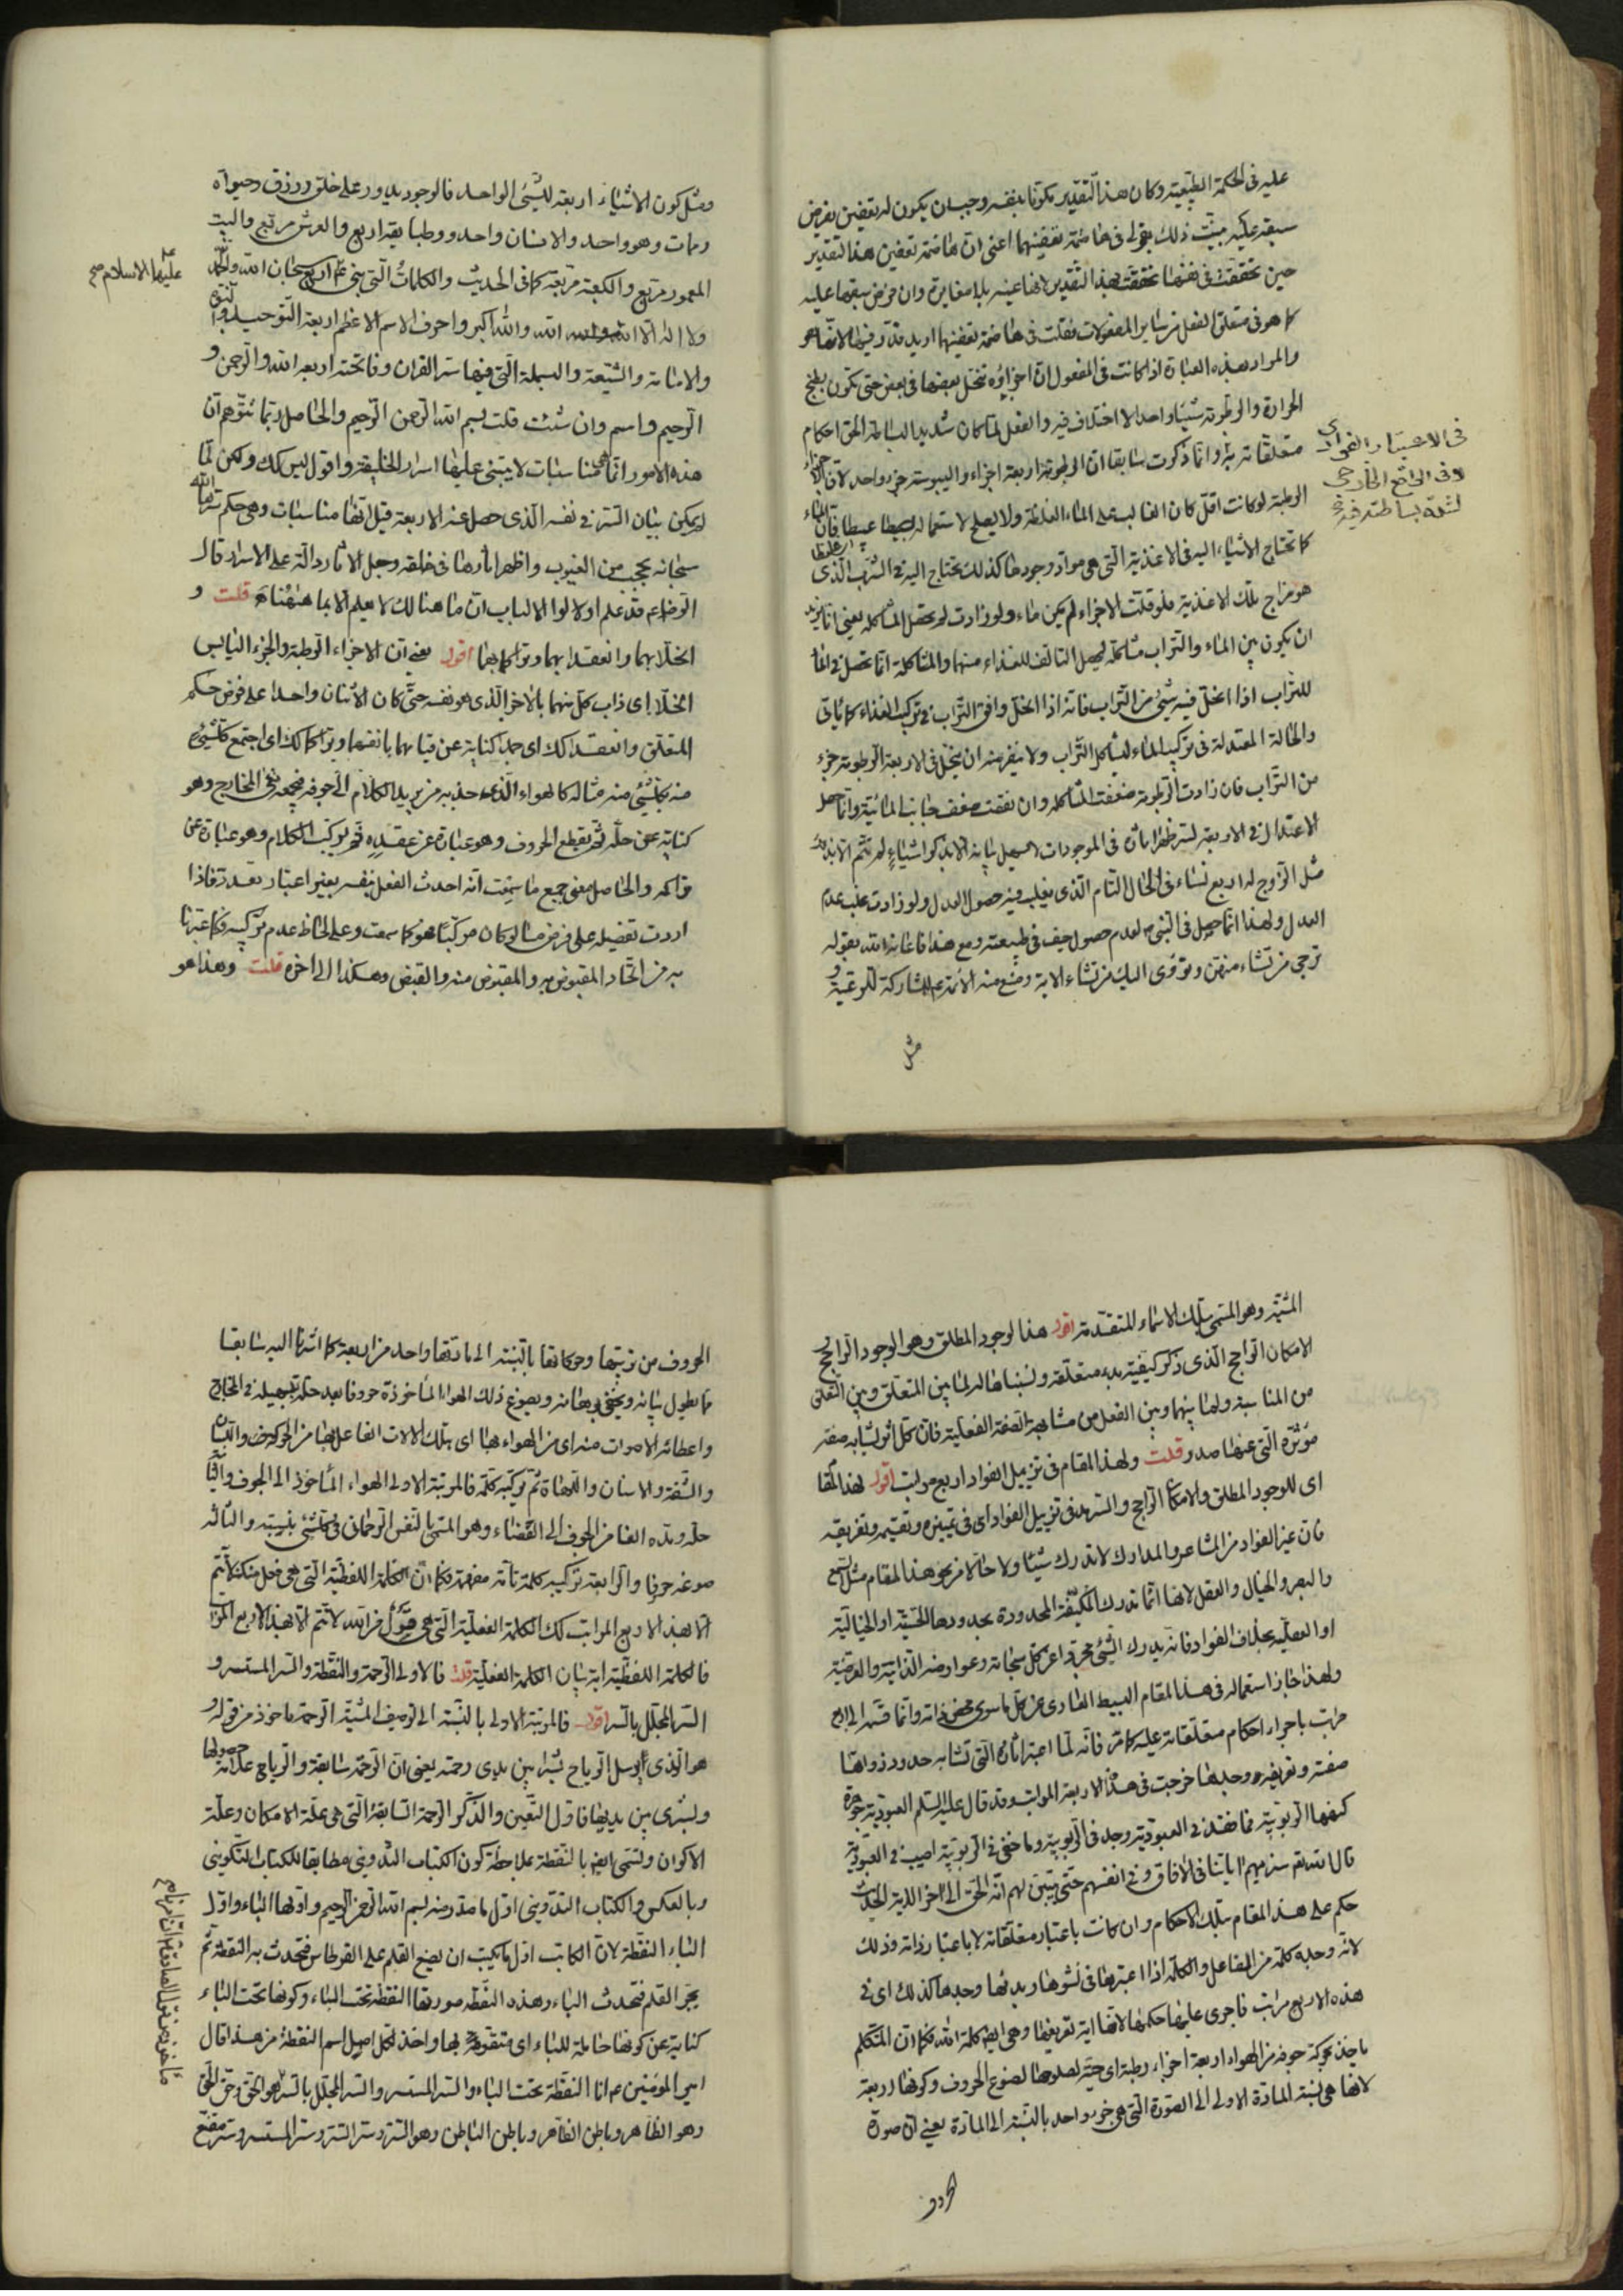 عليه فى الحكمة الطبيعية وكان هذا التقدير مكوّنا بنفسه وجب ان يكون له بعضين بفرض
سبقه عليه بينت ذلك بقولى فى هاضمة تعفينهما اعنى ان هاضمة تعفين هذا التقدير
حين تحققت فى نفسها تحققت بهذا التقدير لانها عينه بلا مغايرة وان فرض سبقها عليه
كما هو فى متعلق الفعل من ساير المفعولات فقلت فى هاضمة تعفينهما اريد قدر فيهما لانها هو
والمراد بهذه العبارة اذا كانت فى المفعول ان اجزاؤه تنحل بعضها فى بعض حتى تكون بطبخ
الحرارة والرطوبة شيئا واحدا لا اختلاف فيه والفعل لما كان شديد البساطة الحق احكام
متعلقاته به وانما ذكرت سابقا ان الرطوبة اربعة اجزاء واليبوسة جزء واحد لان الاجزاء
فى الاعتبار الفؤادى
لا فى الواقع الخارجى
لشدة بساطته فيه
الرطبة لو كانت اقل كان الغالب على الماء الغلظة ولا يصلح لاستعماله بسيطا فان الماء
كما تحتاج الاشياء اليه فى الاغذية التى هى مواد وجودها كذلك تحتاج اليه فى الشرب الذى
هو مزاج تلك الاغذية فلو قلت الاجزاء لم يكن ماء ولو زادت لم تحصل المشاكلة يعنى انا نريد
ان يكون بين الماء والتراب مشاكلة ليحصل التالف للغذاء منهما والمشاكلة انما تحصل فى الماء
للتراب اذا انحل فيه شئ من التراب فانه اذا انحل وافق التراب فى تركيب الغذاء كما ياتى
والحالة المعتدلة فى تركيب الماء ليشاكل التراب ولا ينفر منه ان ينحل فى الاربعة الرطوبة جزء
من التراب فان زادت الرطوبة ضعفت المشاكلة وان نقصت ضعف جانب المائية وانما حصل
الاعتدال فى الاربعة لسر ظهر اثاره فى الموجودات لا يسهل بيانه الا بذكر اشياء لم نتم الا بذلك
مثل الزوج له اربع نساء فى الحال التام الذى يغلب فيه حصول العدل ولو زادت غلب عدم
العدل ولهذا انما حصل فى النبى ص لعدم حصول حيف فى طبيعته ومع هذا فاعانه الله بقوله
ترجى من تشاء منهن وتؤوى اليك من تشاء الاية ومنع منه الائمة ع للمشاركة للرعية
مثل
ومثل كون الاشياء اربعة للشئ الواحد فالوجود يدور على خلق ورزق وحيوة
وممات وهو واحد والانسان واحد وطبايعه اربع والعرش مربع والبيت
المعمور مربع والكعبة مربعة كما فى الحديث والكلمات التى بنى عليها الاسلام اربع سبحان الله والحمد لله
عليها الاسلام صح
ولا اله الا الله والله اكبر واحرف الاسم الاعظم اربعة التوحيد والنبوة
والامامة والشيعة والبسملة التى فيها سر القران وفاتحته اربعة الله والرحمن و
الرحيم واسم وان شئت قلت بسم الله الرحمن الرحيم والحاصل ربما تتوهم ان
هذه الامور انما هى مناسبات لا يبتنى عليها اسرار الخليقة واقول ليس كك ولكن لما
لم يمكن بيان السر فى نفسه الذى حصل عنه الاربعة قيل انها مناسبات وهى حكم سترها الله
سبحانه بحجب من الغيوب واظهر اثارها فى خلقه وجعل الاثار دالة على الاسرار قال
الرضا ع قد علم اولوا الالباب ان ما هنالك لا يعلم الا بما هيهنا قلت و
انحلا بهما وانعقدا بهما وتراكما بهما اقول يعنى ان الاجزاء الرطبة والجزء اليابس
انحلا اى ذاب كل منهما بالاخر الذى هو نفسه حتى كان الاثنان واحدا على فرض حكم
المتعلق وانعقدا كك اى جمدا كناية عن قيامهما بانفسهما وتراكما كك اى اجتمع كل شئ
منه بكل شئ منه مثاله كالهواء الذى جذبه من يريد الكلام الى جوفه فيجمعه فى المخارج وهو
كناية عن حله ثم يقطع الحروف وهو عبارة عن عقده ثم يركب الكلام وهو عبارة عن
تراكمه والحاصل معنى جميع ما سمعت انه احدث الفعل بنفسه بغير اعتبار تعدد فاذا
اردت تفصيله على فرض ما لو كان مركبا فهو كما سمعت وعلى لحاظ عدم تركبه فكما عبرنا
به من اتحاد المقبوض به والمقبوض منه والقبض وهكذا الى اخره قلت وهذا هو
المشية وهو المسمى بتلك الاسماء المتقدمة اقول هذا الوجود المطلق وهو الوجود الراجح
الامكان الراجح الذى ذكر كيفية بدء متعلقه ونسبناها له لما بين المتعلق وبين التعلق
من المناسبة ولما بينهما وبين الفعل من مشابهة الصفة الفعلية فان كل اثر يشابه صفة
مؤثره التى عنها صدر قلت ولهذا المقام فى تزييل الفؤاد اربع مراتب اقول لهذا المقام
اى للوجود المطلق والامكان الراجح والسرمد فى تزييل الفؤاد اى فى تمييزه وتقسيمه وتفريقه
فان غير الفؤاد من المشاعر والمدارك لا تدرك شيئا ولا حالا من نحو هذا المقام مثل السمع
والبصر والخيال والعقل لانها انما تدرك المكيفة المحدودة بحدودها الحسية او الخيالية
او العقلية بخلاف الفؤاد فانه يدرك الشئ مجردا عن كل سبحاته وعوارضه الذاتية والعرضية
ولهذا جاز استعماله فى هذا المقام البسيط العارى عن كل ما سوى محض ذاته وانما قسم الى اربع
مراتب باجراء احكام متعلقاته عليه كما مر فانه لما اعتبر اثاره التى تشابه حدود ذواتها
صفته وتعريفه وجدها خرجت فى هذه الاربعة المراتب وقد قال عليه السلم العبودية جوهرة
كنهها الربوبية فما فقد فى العبودية وجد فى الربوبية وما خفى فى الربوبية اصيب فى العبودية
قال الله تعم سنريهم اياتنا فى الافاق وفى انفسهم حتى يتبين لهم انه الحق الى اخر الاية الحديث
حكم على هذا المقام بتلك الاحكام وان كانت باعتبار متعلقاته لا باعتبار ذاته وذلك
لانه وجده كلمة من الفاعل والكلمة اذا اعتبرها فى نشوها وبدئها وجدها كذلك اى فى
هذه الاربع مراتب فاجرى عليها حكمها لانها اية تعريفها وهى ايضا كلمة الله فكما ان المتكلم
ياخذ بحركة جوفه من الهواء اربعة اجزاء رطبة اى حية لصلوحها لصوغ الحروف وكونها اربعة
لانها هى نسبة المادة الاولى الى الصورة التى هى جزء واحد بالنسبة الى المادة يعنى ان صورة
الحروف
الحروف من تربتها وحركاتها بالنسبة الى مادتها واحد من اربعة كما اشرنا اليه سابقا
مما يطول بيانه ويخفى برهانه ويصوغ ذلك الهواء الماخوذ حروفا بعد حله بتسهيله فى المخارج
واعطائه الاصوات منه اى من الهواء بها اى بتلك الالات الفاعل بها من الحركة واللسان
والشفة والاسنان واللهاة ثم تركبه كلمة فالمرتبة الاولى الهواء الماخوذ الى الجوف والثانية
حله ومده الفا من الجوف الى الفضاء وهو المسمى بالنفس الرحمانى فى كل شئ بنسبته والثالثة
صوغه حروفا والرابعة تركيبه كلمة تامة مفهمة فكما ان الكلمة اللفظية التى هى فعل متكلم لا تتم
الا بهذه الاربع المراتب كك الكلمة الفعلية التى هى قول من الله لا تتم الا بهذه الاربع المراتب
فالكلمة اللفظية اية بيان الكلمة الفعلية قلت فالاولى الرحمة والنقطة والسر المستسر و
السر المجلل بالسر اقول فالمرتبة الاولى بالنسبة الى توصيف المشية الرحمة ماخوذ من قوله
هو الذى يرسل الرياح بشرا بين يدى رحمته يعنى ان الرحمة سابقة والرياح علامة حصولها
وبشرى بين يديها فاول التعين والذكر الرحمة السابقة التى هى علة الامكان وعلة
الاكوان وتسمى ايضا بالنقطة بملاحظة كون الكتاب التدوينى مطابقا للكتاب التكوينى
وبالعكس والكتاب التدوينى اول ما صدر منه بسم الله الرحمن الرحيم واولها الباء واول
الباء النقطة لان الكاتب اول ما يكتب ان يضع القلم على القرطاس فتحدث به النقطة ثم
يجر القلم فتحدث الباء وهذه النقطة صورتها النقطة تحت الباء وكونها تحت الباء
كناية عن كونها حاملة للباء اى متقومة بها واخذ لكل اصل اسم النقطة من هذا قال
امير المؤمنين ع انا النقطة تحت الباء والسر المستسر والسر المجلل بالسر هو الحق وحق الحق
وهو الظاهر وباطن الظاهر وباطن الباطن وهو السر وسر السر وسر المستسر وسر مقنع